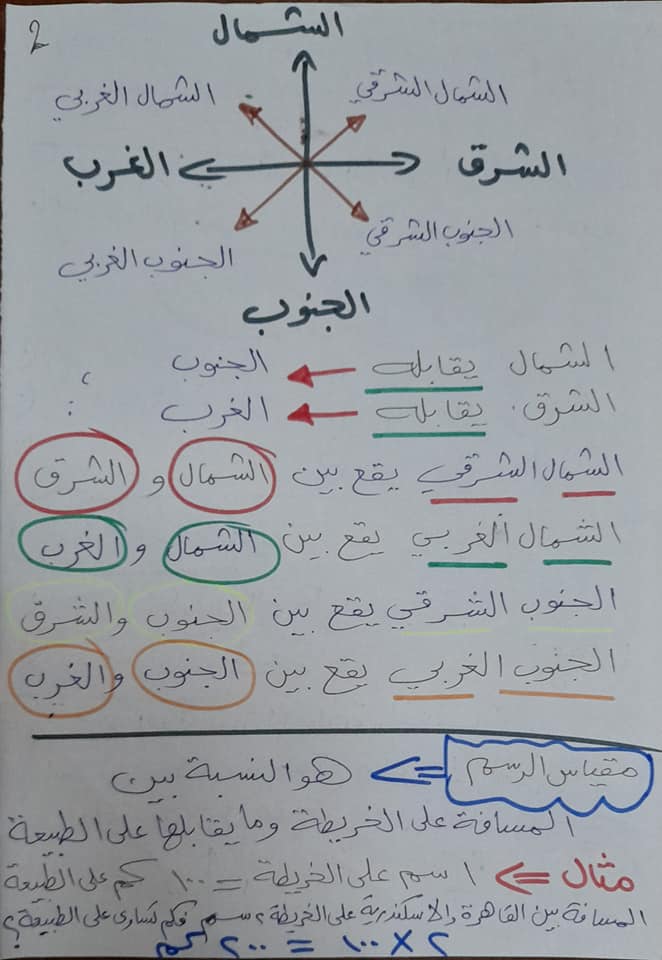 2
الشمال
الشمال الغربي
الشمال الشرقي
الغرب
الشرق
الجنوب الغربي
الجنوب الشرقي
الجنوب
الشمال يقابله الجنوب ،
الشرق يقابله الغرب :
الشمال الشرقي يقع بين الشمال و الشرق
الشمال الغربي يقع بين الشمال والغرب
الجنوب الشرقي يقع بين الجنوب والشرق
الجنوب الغربي يقع بين الجنوب والغرب
مقياس الرسم <= هو النسبة بين
المسافة على الخريطة وما يقابلها على الطبيعة
مثال <= ١ سم على الخريطة = ١٠٠ كم على الطبيعة
المسافة بين القاهرة والاسكندرية على الخريطة ٢ سم فكم تساوى على الطبيعة ؟
٢ × ١٠٠ = ٢٠٠ كم